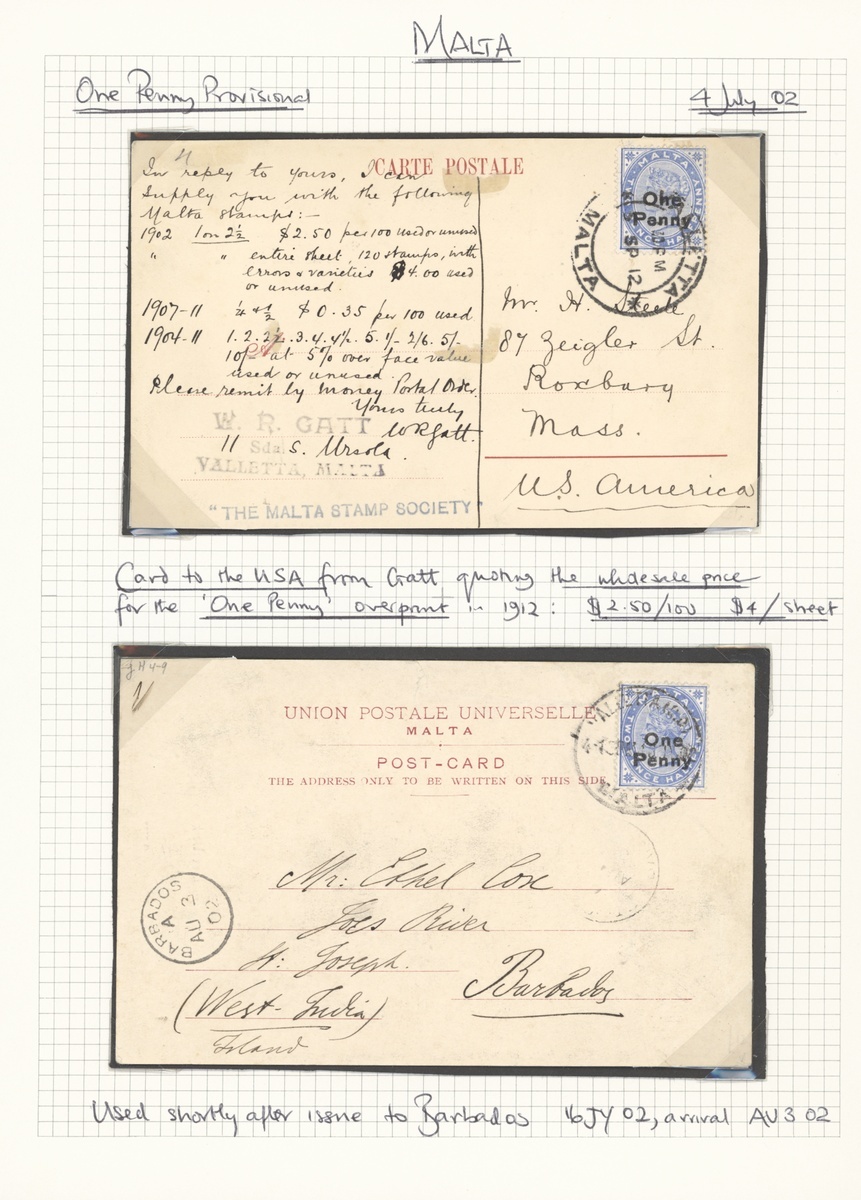 MALTA
One Penny Provisional
4 July 02
CARTE POSTALE
In reply to yours, I can
supply you with the following
Malta stamps:—
1902 1 on 2½ $2.50 per 100 used or unused
" " entire sheet, 120 stamps, with
errors & varieties $4.00 used
or unused.
1907-11 ¼ & ½ $0.35 per 100 used
1904-11 1. 2. 2½. 3. 4. 4½. 5. 1/- 2/6. 5/-
at 5% over face value
used or unused
Please remit by money Postal Order.
Yours truly
WRGatt.
W. R. GATT
11 Sda S. Ursola.
VALLETTA, MALTA
"THE MALTA STAMP SOCIETY"
MALTA
One
Penny
VALLETTA
MALTA
SP 12
Mr. H. Steele
87 Zeigler St.
Roxbury
Mass.
U.S. America
Card to the USA from Gatt quoting the wholesale price
for the 'One Penny' overprint in 1912: $2.50/100 $4/sheet
UNION POSTALE UNIVERSELLE
MALTA
POST-CARD
THE ADDRESS ONLY TO BE WRITTEN ON THIS SIDE.
One
Penny
MALTA
BARBADOS
A
AU 2
02
Mr: Ethel Cox
Joes River
St: Joseph.
Barbados
(West-India)
Island
Used shortly after issue to Barbados 16 JY 02, arrival AU 3 02